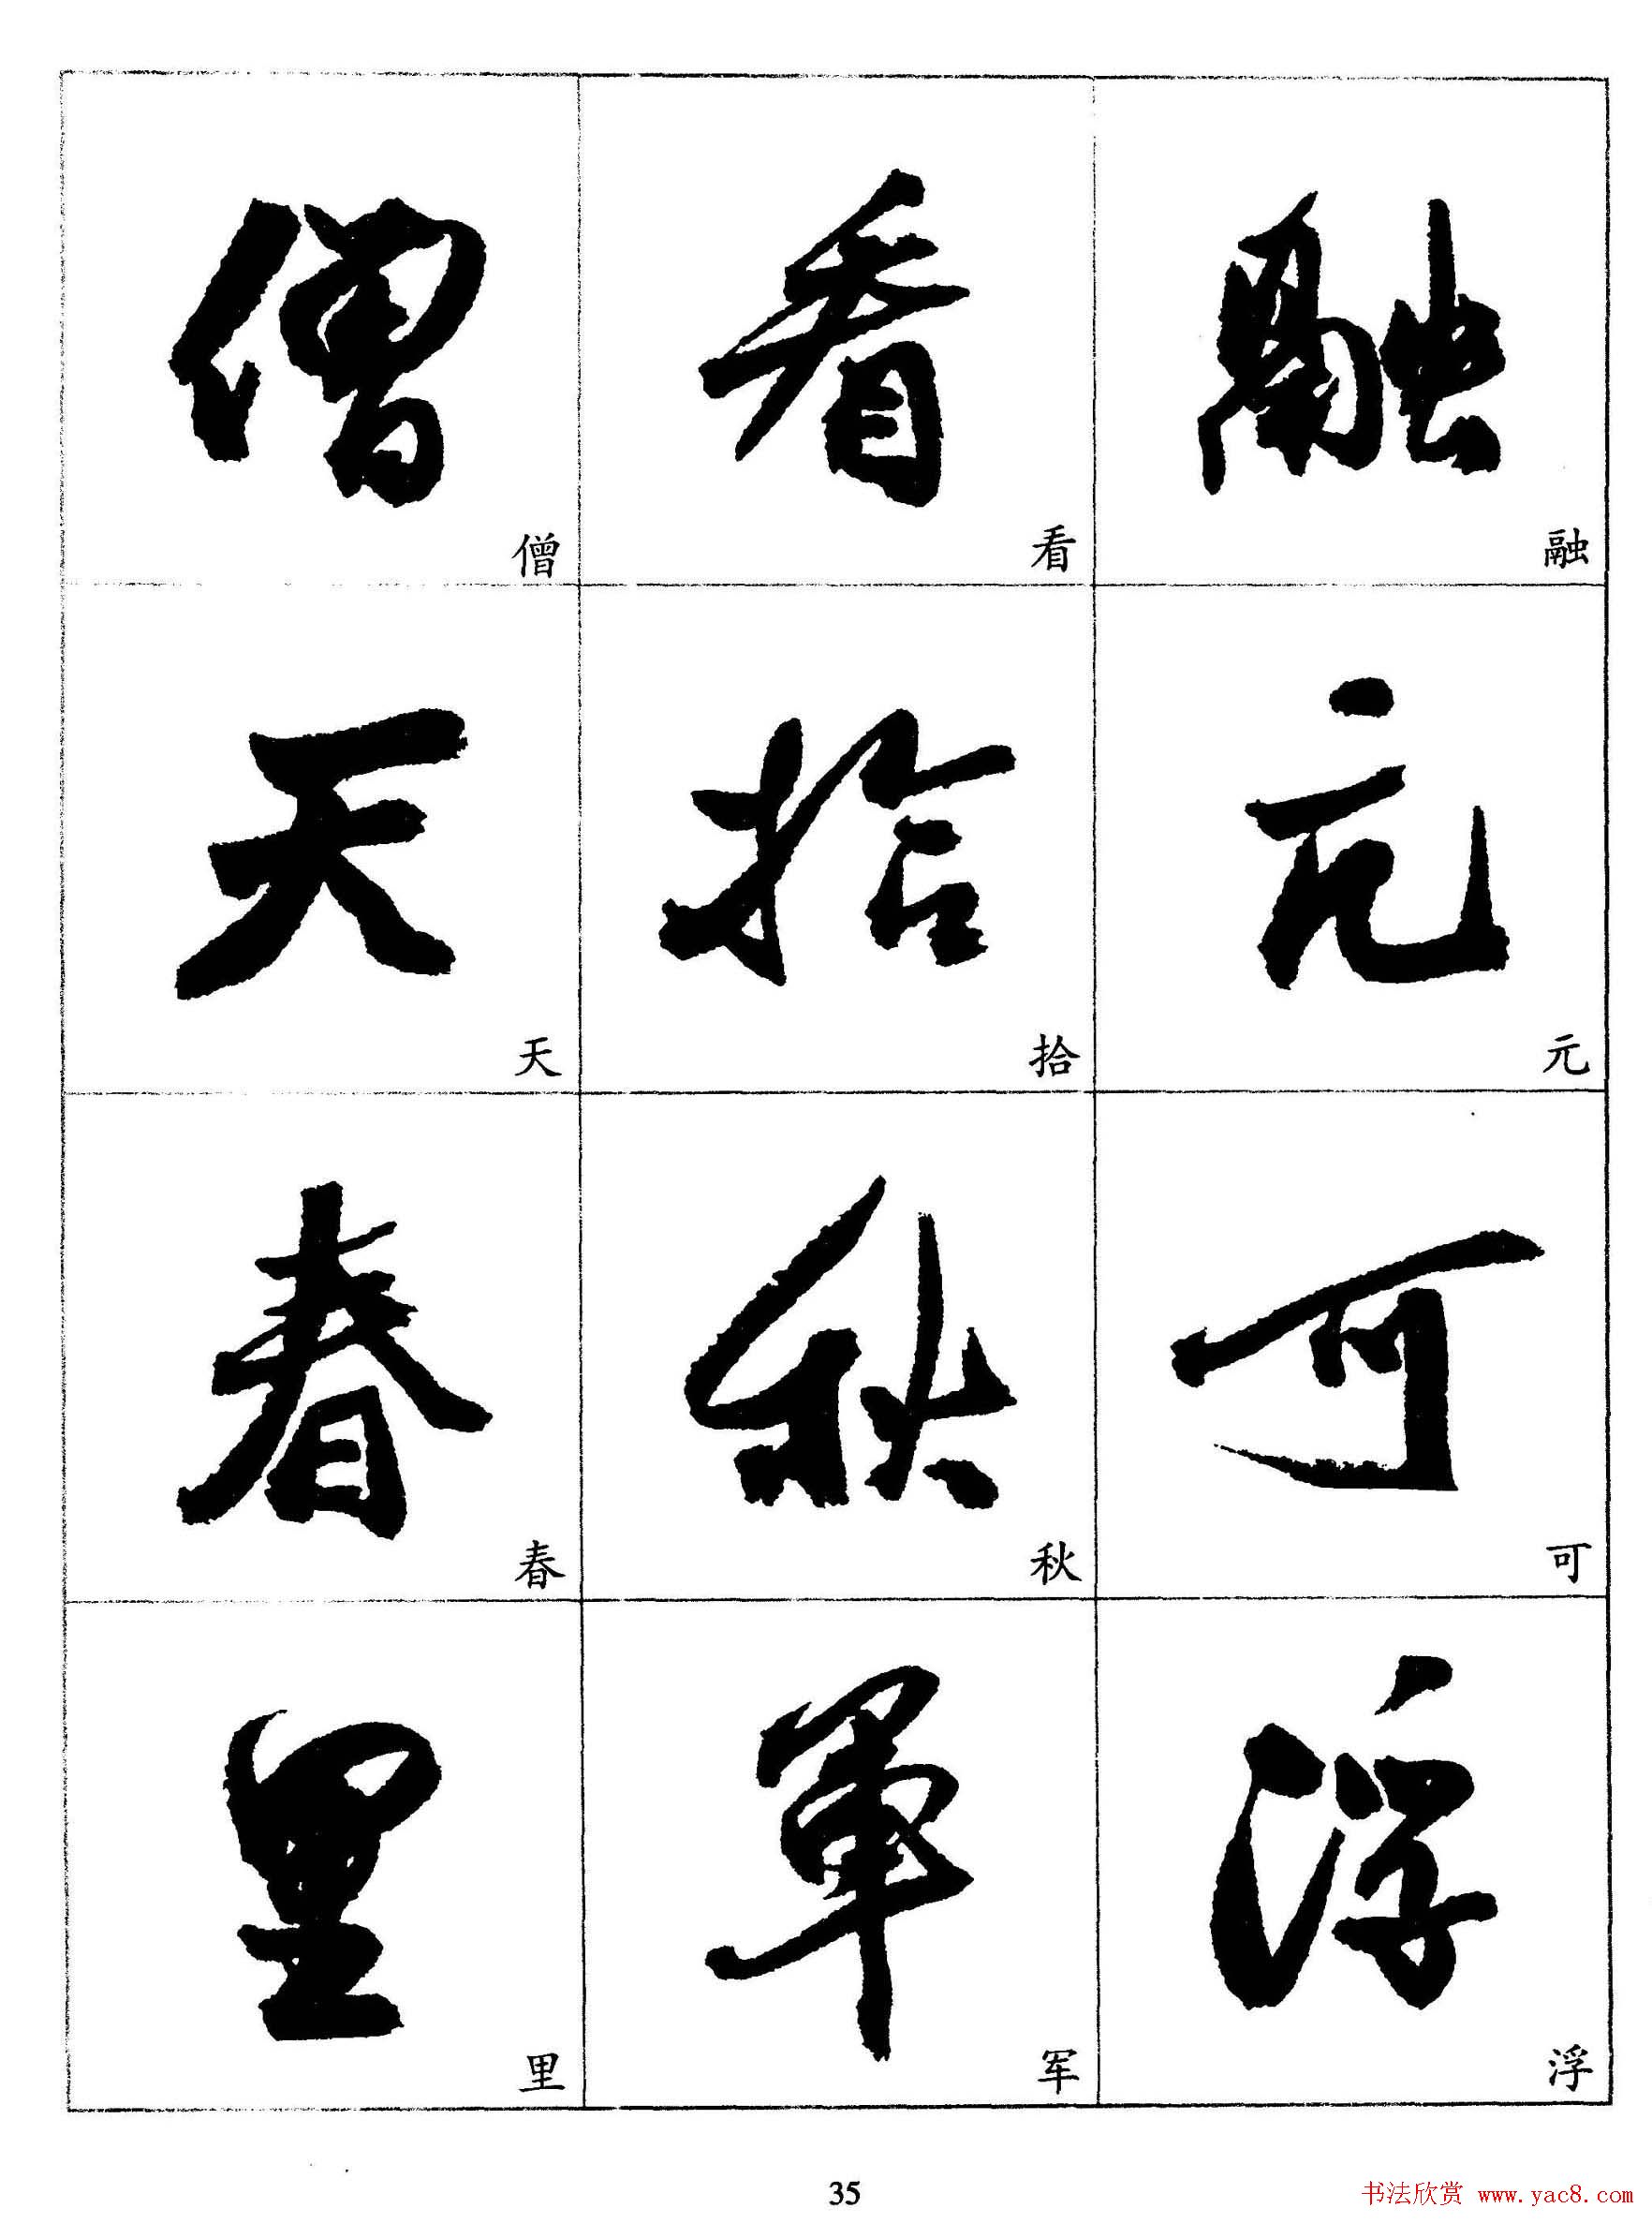 僧 看 融
僧 看 融
天 拾 元
天 拾 元
春 秋 可
春 秋 可
里 軍 浮
里 军 浮
35
书法欣赏 www.yac8.com